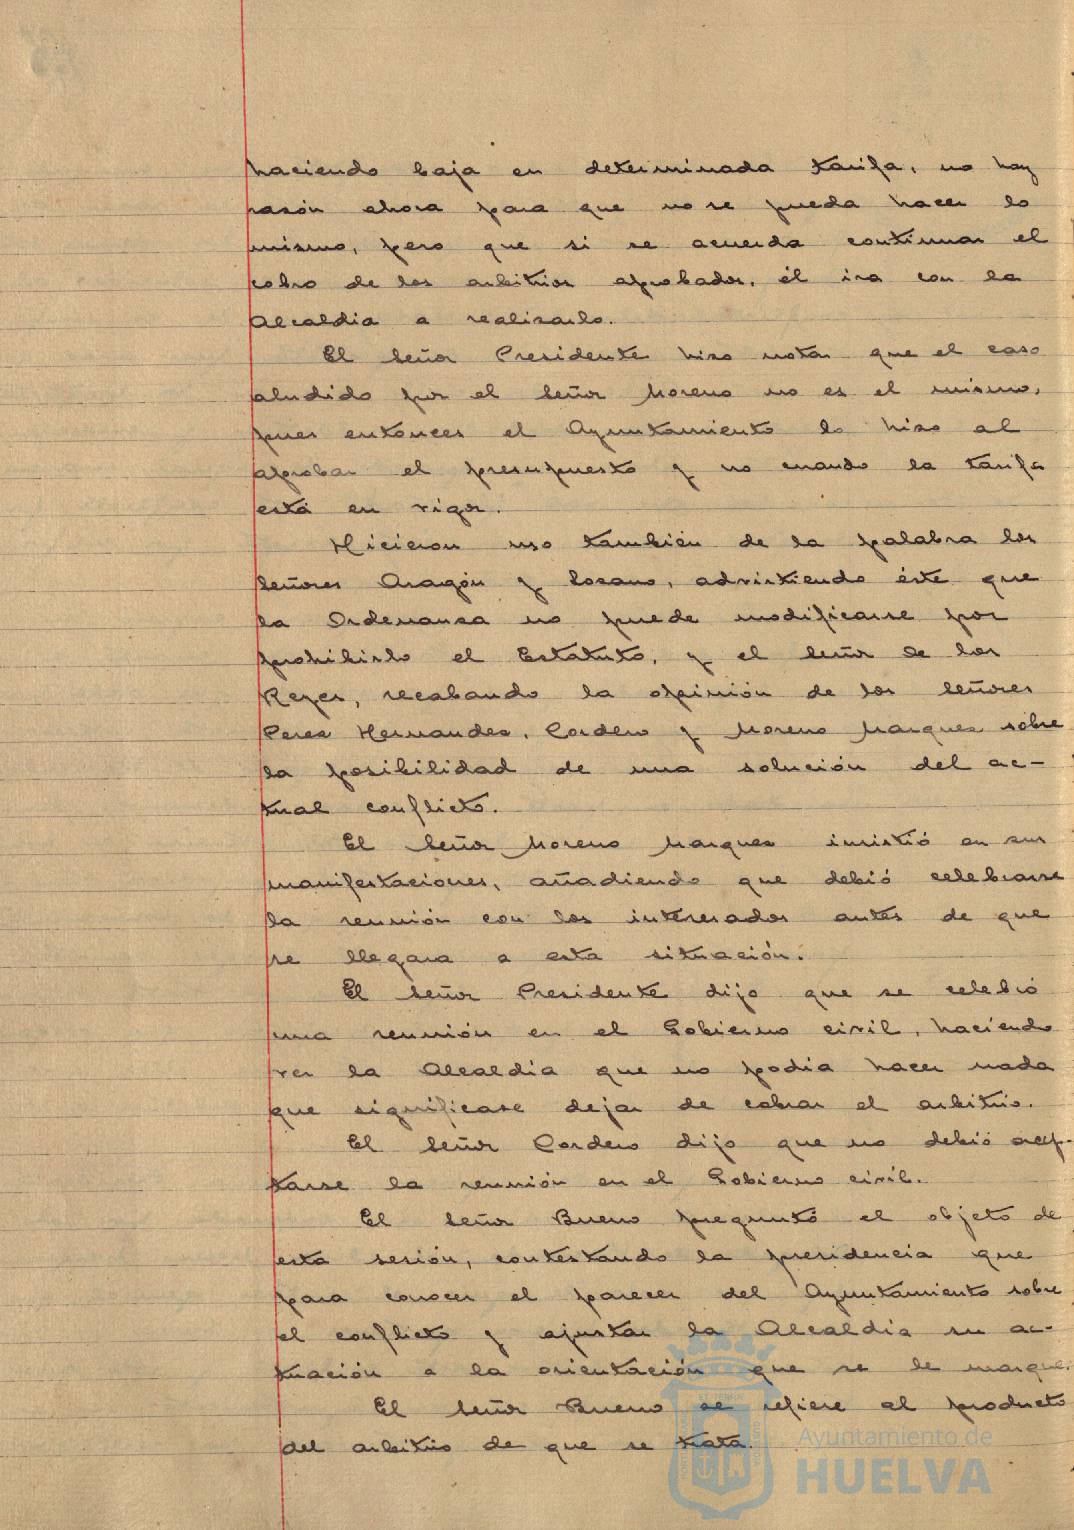 haciendo baja en determinada tarifa, no hay
rasón ahora para que no se pueda hacer lo
mismo, pero que si se acuerda continuar el
cobro de los arbitrios aprobados, él ira con la
Alcaldia a realisarlo.
El Señor Presidente hiso notar que el caso
aludido por el Señor Moreno no es el mismo,
pues entonces el Ayuntamiento lo hiso al
aprobar el presupuesto y no cuando la tarifa
está en vigor.
Hicieron uso también de la palabra los
Señores Aragón y Losano, advirtiendo éste que
la Ordenansa no puede modificarse por
prohibirlo el Estatuto, y el Señor de los
Reyes, recabando la opinión de los Señores
Peres Hernandes, Cordero y Moreno Marques sobre
la posibilidad de una solución del ac-
tual conflicto.
El Señor Moreno Marques insistió en sus
manifestaciones, añadiendo que debió celebrarse
la reunión con los interesados antes de que
se llegara a esta situación.
El Señor Presidente dijo que se celebró
una reunión en el Gobierno civil, haciendo
ver la Alcaldia que no podia hacer nada
que significase dejar de cobrar el arbitrio.
El Señor Cordero dijo que no debió acep-
tarse la reunión en el Gobierno civil.
El Señor Bueno preguntó el objeto de
esta sesión, contestando la presidencia que
para conocer el parecer del Ayuntamiento sobre
el conflicto y ajustar la Alcaldia su ac-
tuación a la orientación que se le marque.
El Señor Bueno se refiere al producto
del arbitrio de que se trata.
Ayuntamiento de
HUELVA